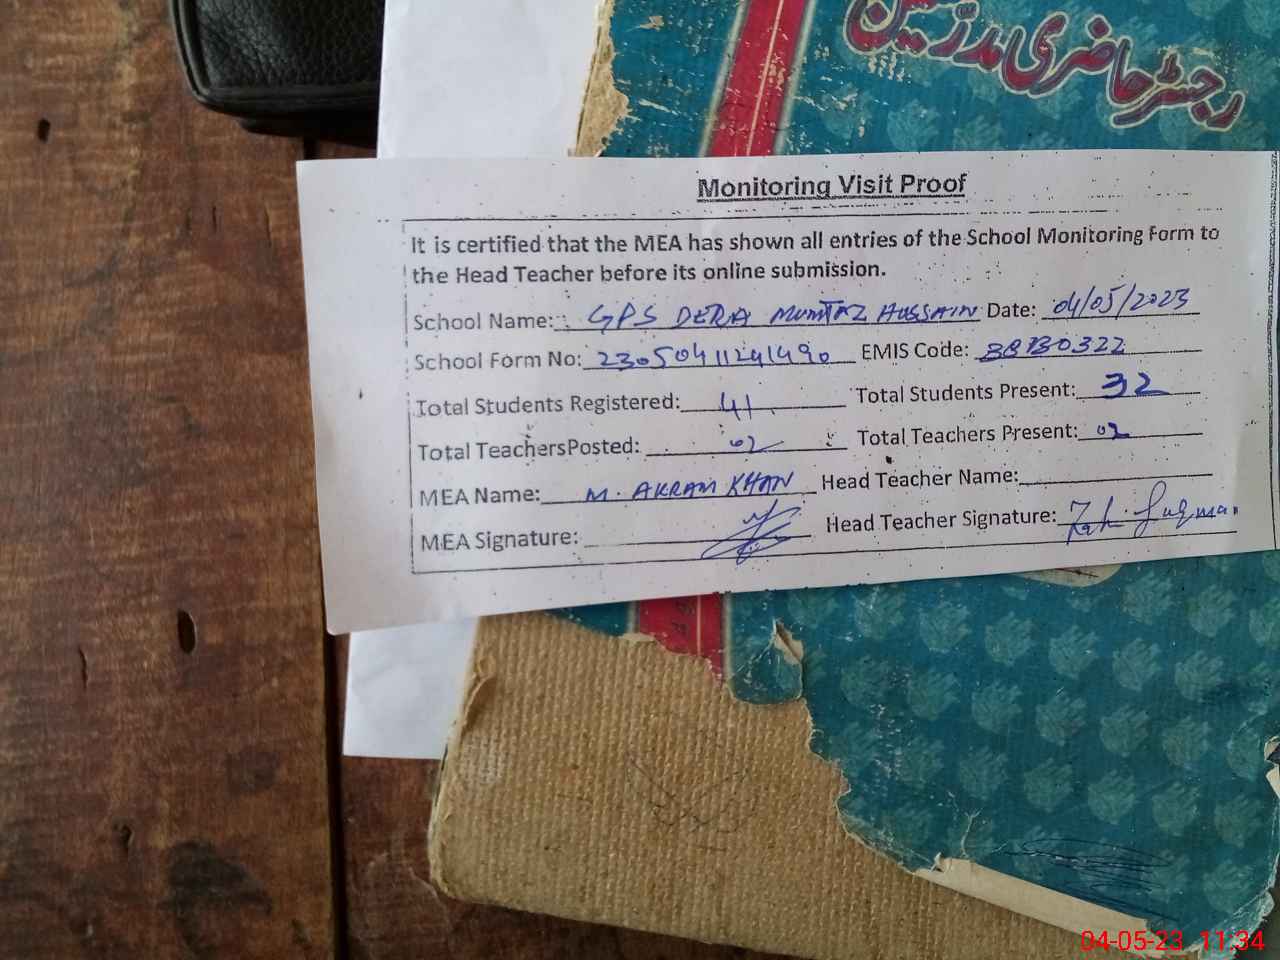 رجسٹر حاضری مدرسین
Monitoring Visit Proof
It is certified that the MEA has shown all entries of the School Monitoring Form to
the Head Teacher before its online submission.
School Name: GPS DERA MUMTAZ HUSSAIN Date: 04/05/2023
School Form No: 23050411241490 EMIS Code:
Total Students Registered: 41 Total Students Present: 32
Total TeachersPosted: 02 Total Teachers Present: 02
MEA Name: M. AKRAM KHAN Head Teacher Name:
MEA Signature: Head Teacher Signature:
04-05-23 11:34